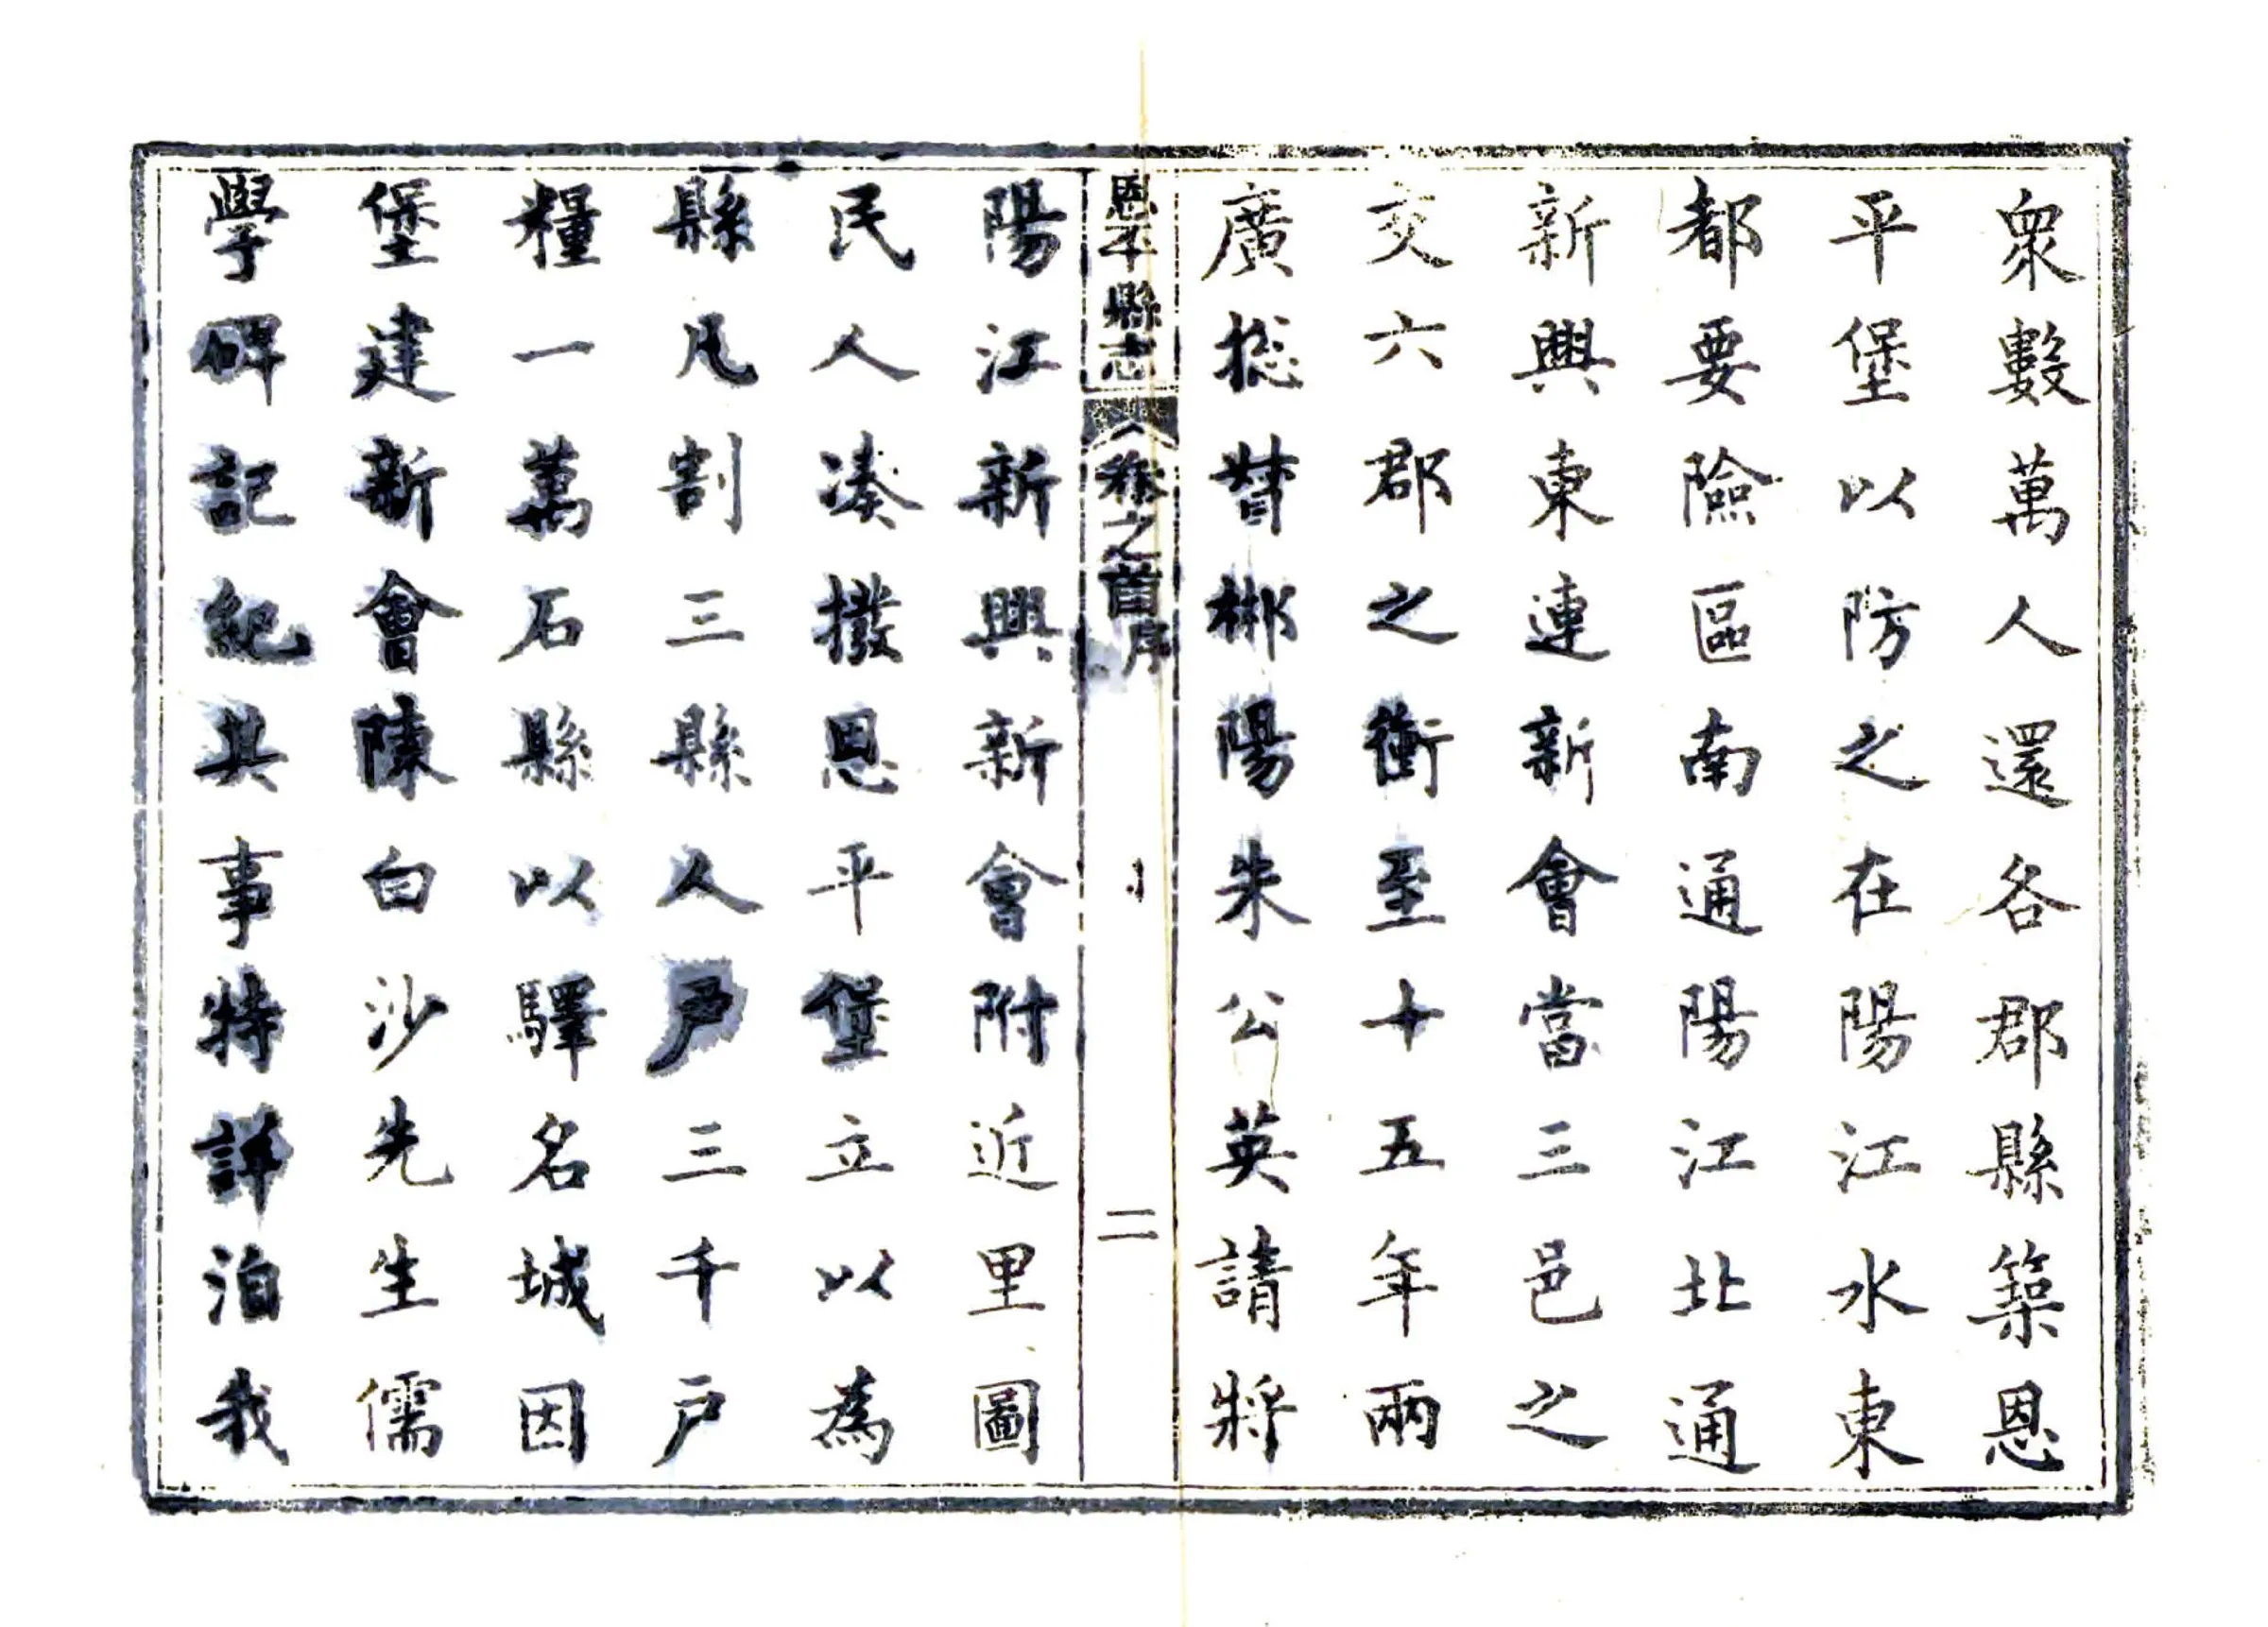 眾數萬人還各郡縣築恩
平堡以防之在陽江水東
都要險區南通陽江北通
新興東連新會當三邑之
交六郡之衝至十五年兩
廣捴督郴陽朱公英請將
恩平縣志 卷之首 序 二
陽江新興新會附近里圖
民人湊撥恩平堡立以為
縣凡割三縣人戶三千戶
糧一萬石縣以驛名城因
堡建新會陳白沙先生儒
學碑記紀其事特詳洎我